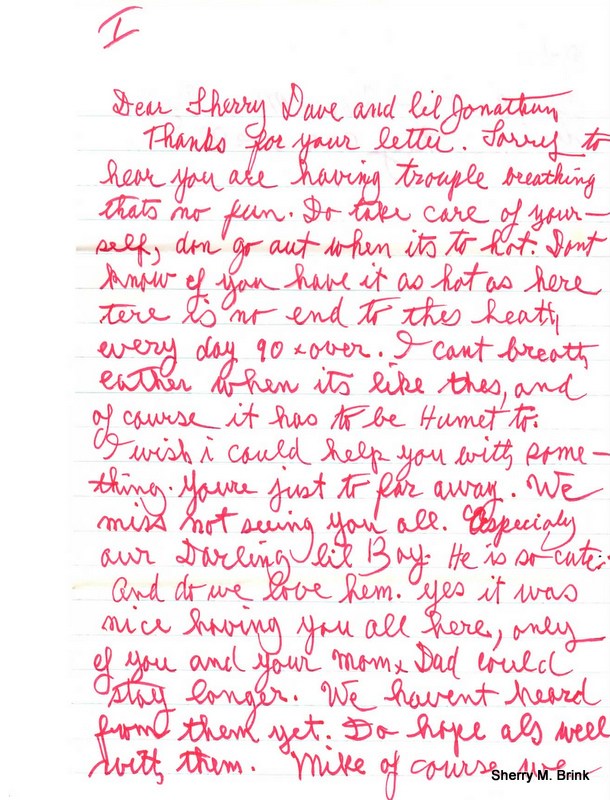 I
Dear Sherry Dave and lil Jonathan
Thanks for your letter. Sorry to
hear you are having trouple breathing
thats no fun. Do take care of your-
self, don go out when its to hot. Dont
know if you have it as hot as here
tere is no end to thes heatt,
every day 90 x over. I cant breath,
eather when its like thes, and
of course it has to be Humet to.
I wish i could help you with some-
thing. Youre just to far away. We
miss not seeing you all. Especialy
our Darling lil Boy. He is so cute.
And do we love hem. yes it was
nice having you all here, only
if you and your mom x Dad could
stay longer. We havent heard
from them yet. Do hope als well
with them. Mike of course we
Sherry M. Brink